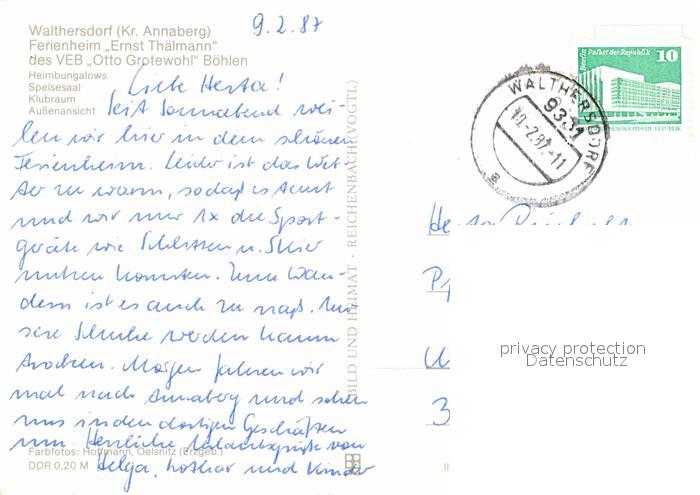 9.2.87
Walthersdorf (Kr. Annaberg)
Ferienheim „Ernst Thälmann“
des VEB „Otto Grotewohl“ Böhlen
Heimbungalows
Speisesaal
Klubraum
Außenansicht
Liebe Herta!
Seit Sonnabend wei-
len wir hier in dem schönen
Ferienheim. Leider ist das Wet-
ter zu warm, sodaß es taut
und wir nur 1x die Sport-
geräte wie Schlitten u. Skier
nutzen konnten. Zum Wan-
dern ist es auch zu naß. Un-
sere Schuhe werden kaum
trocken. Morgen fahren wir
mal nach Annaberg und sehen
uns in den dortigen Geschäften
um. Herzliche Urlaubsgrüße von
Helga, Lothar und Kinder
Farbfotos: Hoffmann, Oelsnitz (Erzgeb.)
DDR 0,20 M
BILD UND HEIMAT · REICHENBACH (VOGTL)
Berlin Palast der Republik
10
DEUTSCHE DEMOKRATISCHE REPUBLIK
WALTHERSDORF
9331
10.-2.87.-11
a
Herta
3
privacy protection
Datenschutz